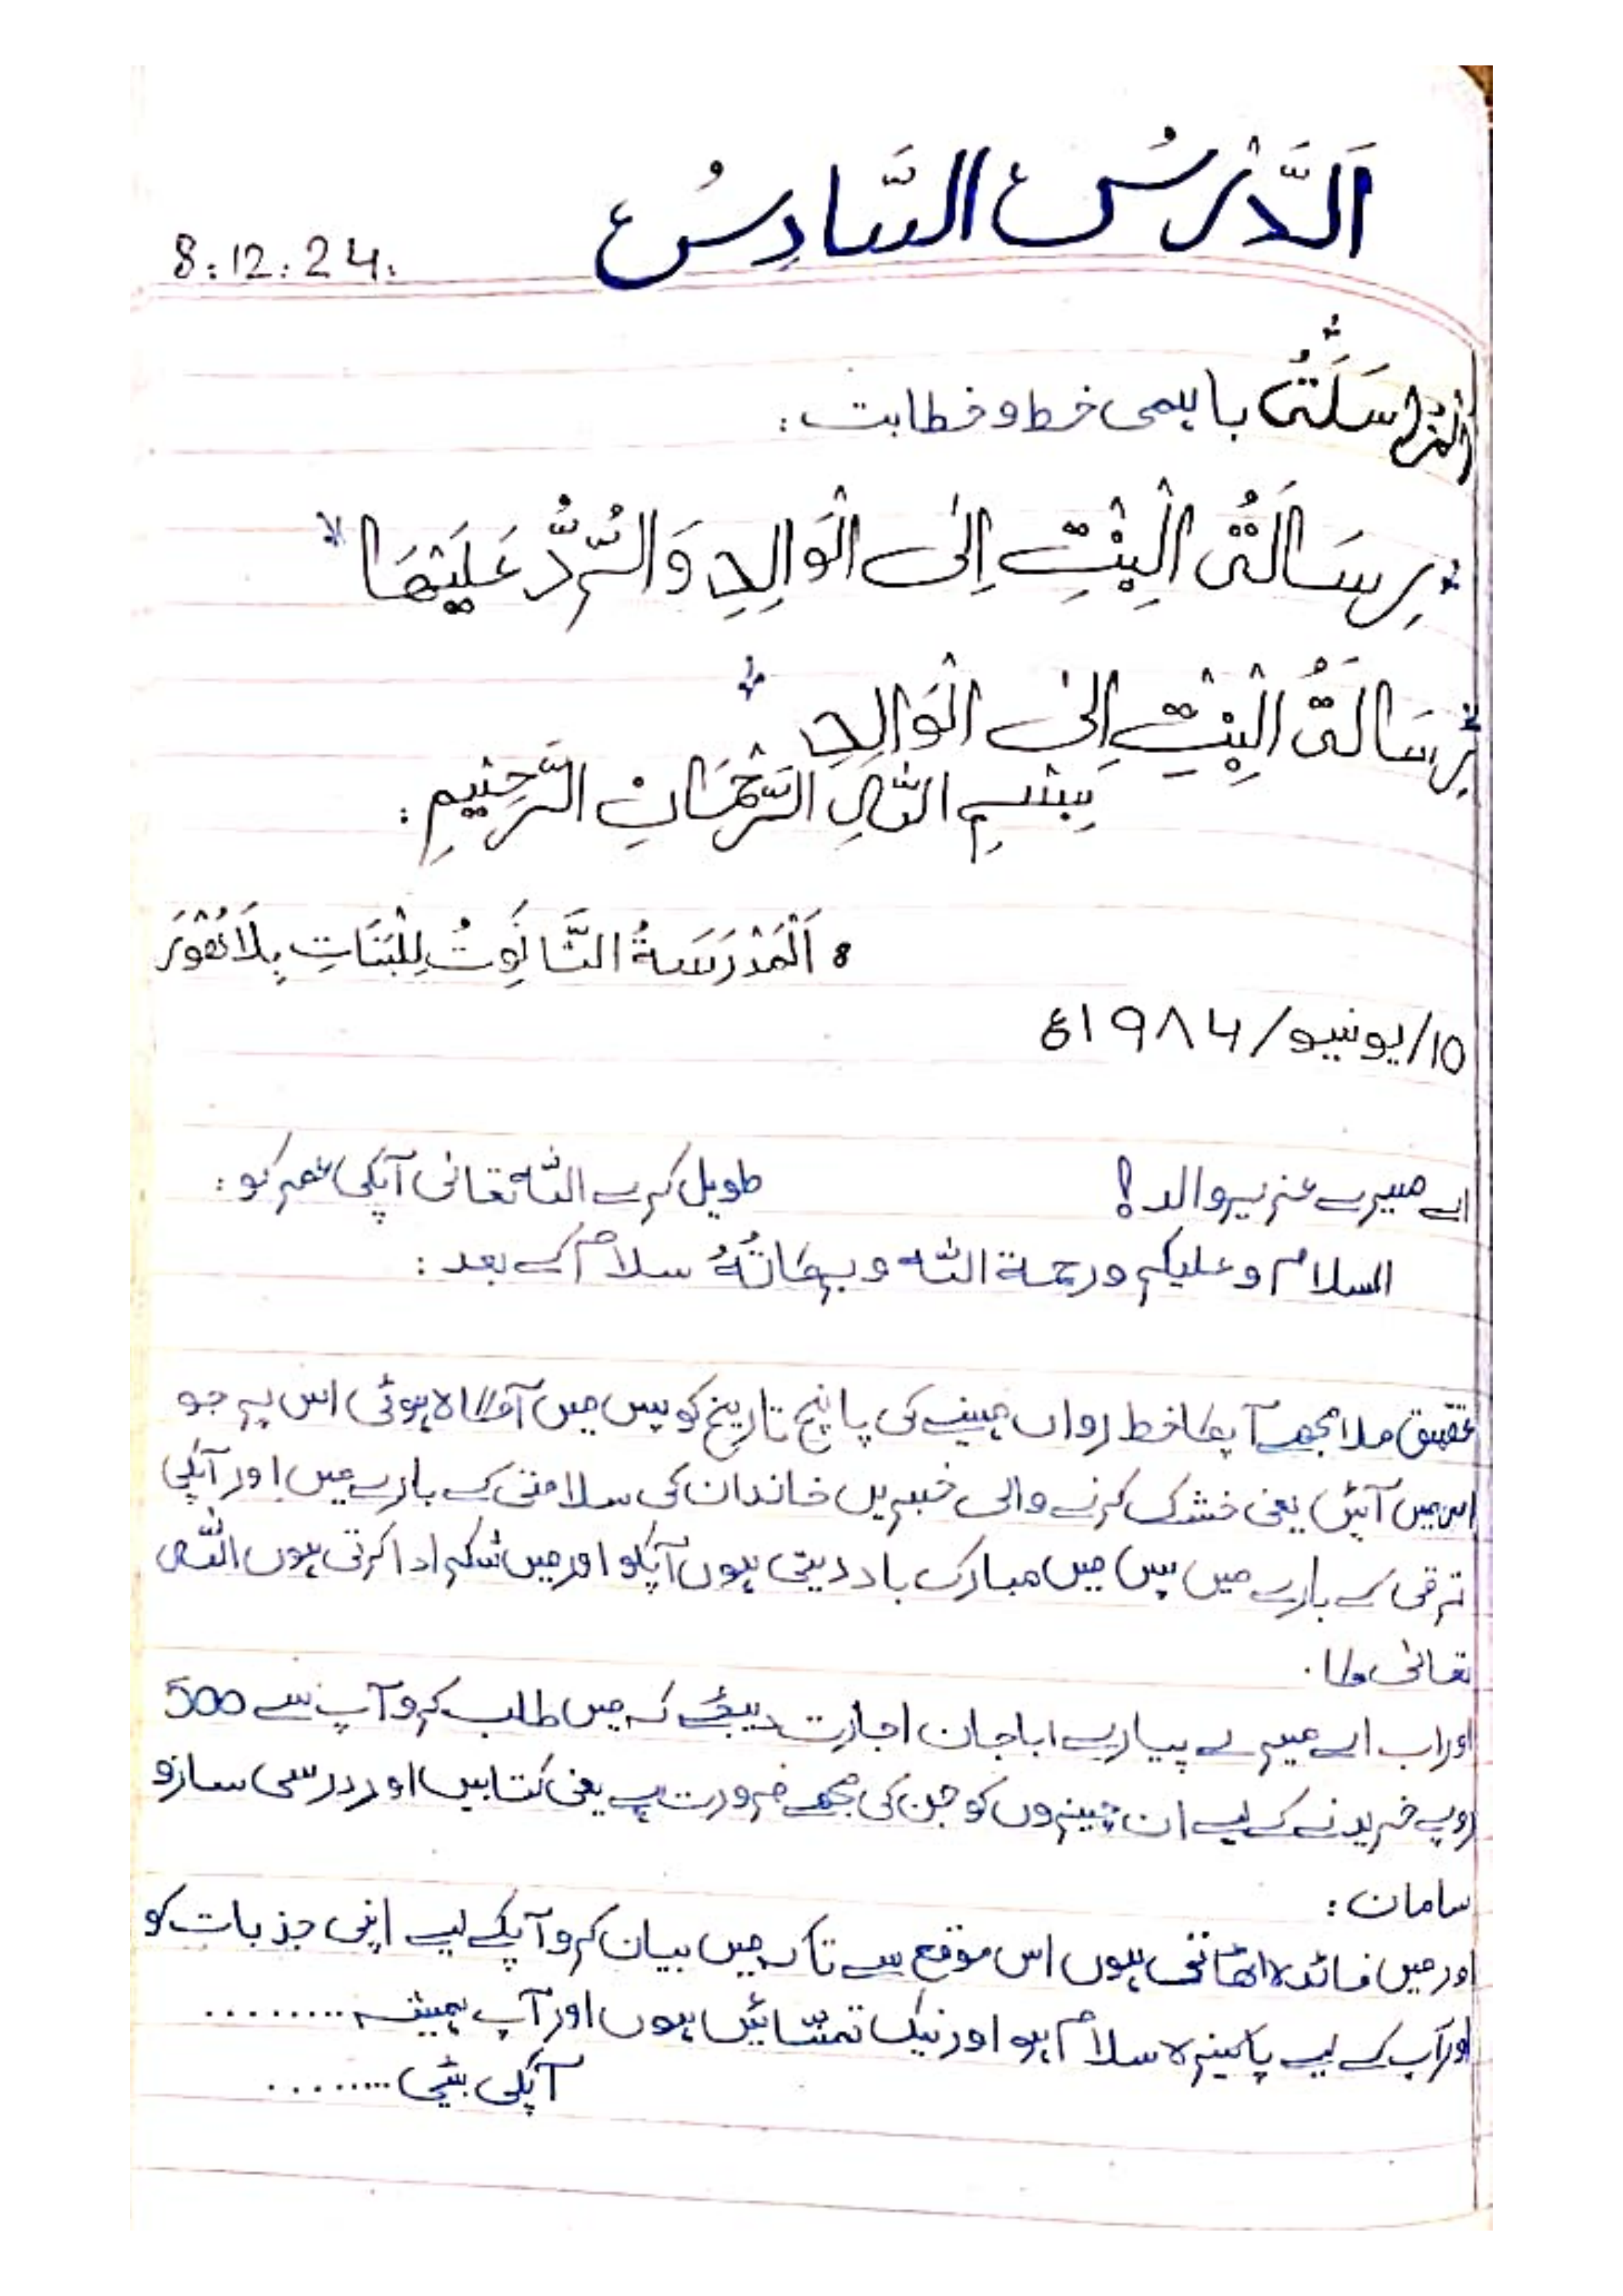 اَلدَّرْسُ السَّادِسُ
8.12.24.
اَلْمُرَاسَلَةُ باہمی خط و خطابت :
رِسَالَةُ الْبِنْتِ اِلَى الْوَالِدِ وَالرَّدُّ عَلَيْهَا
رِسَالَةُ الْبِنْتِ اِلَى الْوَالِدِ
بِسْمِ اللّٰهِ الرَّحْمٰنِ الرَّحِيْمِ :
اَلْمَدْرَسَةُ الثَّانَوِيَّةُ لِلْبَنَاتِ بِلَاهُوْرَ
10/يونيو/۱۹۸۴ء
اے میرے عزیز والد! طویل کرے اللہ تعالیٰ آپکی عمر کو :
السلام و علیکم ورحمة اللہ و برکاتُهُ سلام کے بعد :
تحقیق ملا مجھے آپکا خط رواں مہینے کی پانچ تاریخ کو پس میں آگاہ ہوئی اس پہ جو
اس میں آئیں یعنی خشک کرنے والی خبریں خاندان کی سلامتی کے بارے میں اور آپکی
ترقی کے بارے میں پس میں مبارک باد دیتی ہوں آپکو اور میں شکر ادا کرتی ہوں اللہ
تعالیٰ کا .
اور اب اے میرے پیارے ابا جان اجازت دیجئے کہ میں طلب کرو آپ سے 500
روپے خریدنے کے لیے ان چیزوں کو جن کی مجھے ضرورت ہے یعنی کتابیں اور درسی سازو
سامان :
اور میں فائدہ اٹھاتی ہوں اس موقع سے تاکہ میں بیان کرو آپکے لیے اپنی جذبات کو
اور آپ کے لیے پاکیزہ سلام ہو اور نیک تمنائیں ہوں اور آپ ہمیشہ .........
آپکی بیٹی .........